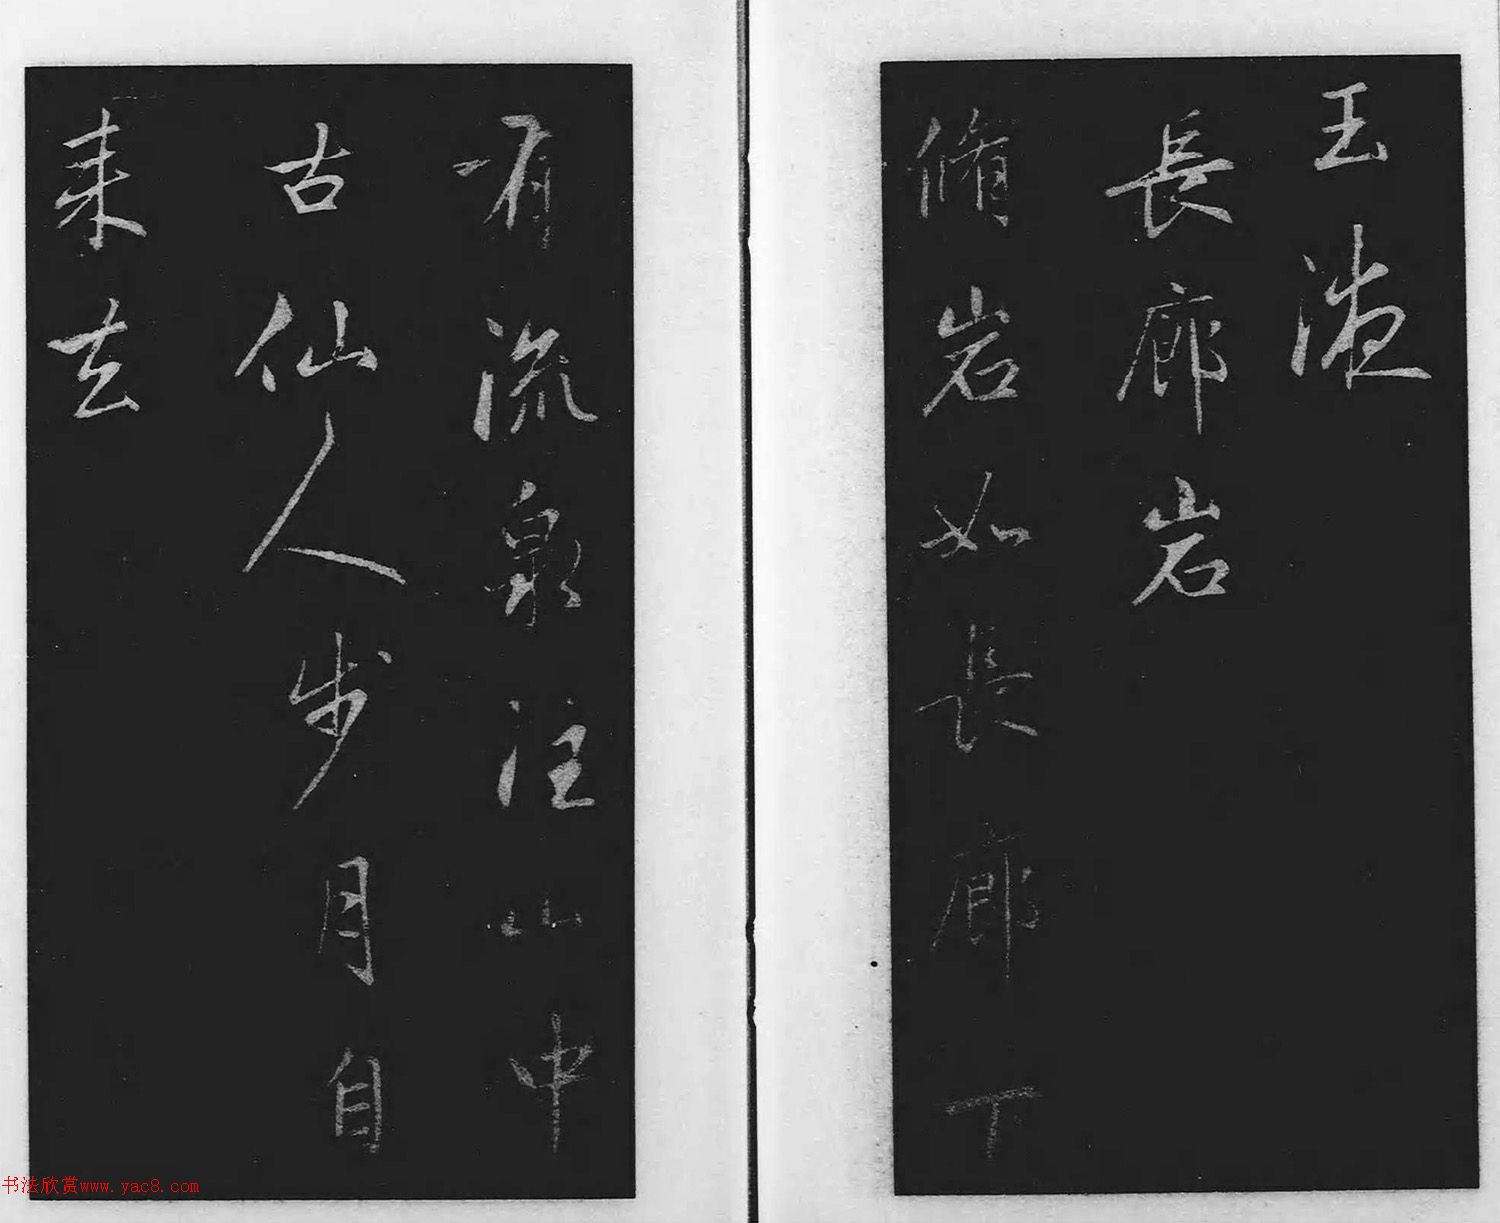 玉液
長廊岩
脩岩如長廊下
有流泉注山中
古仙人步月自
来去
书法欣赏www.yac8.com